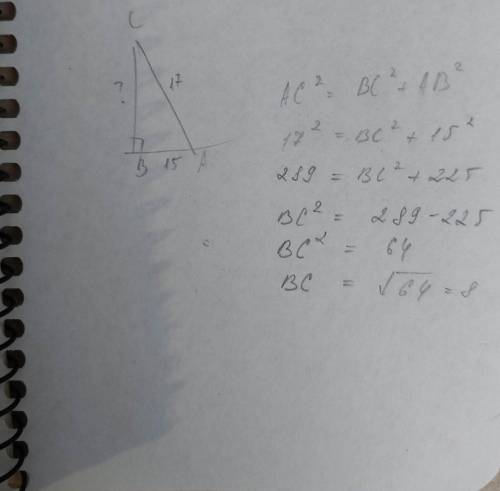 C
? 17
B 15 A
AC² = BC² + AB²
17² = BC² + 15²
289 = BC² + 225
BC² = 289 - 225
BC² = 64
BC = √64 = 8